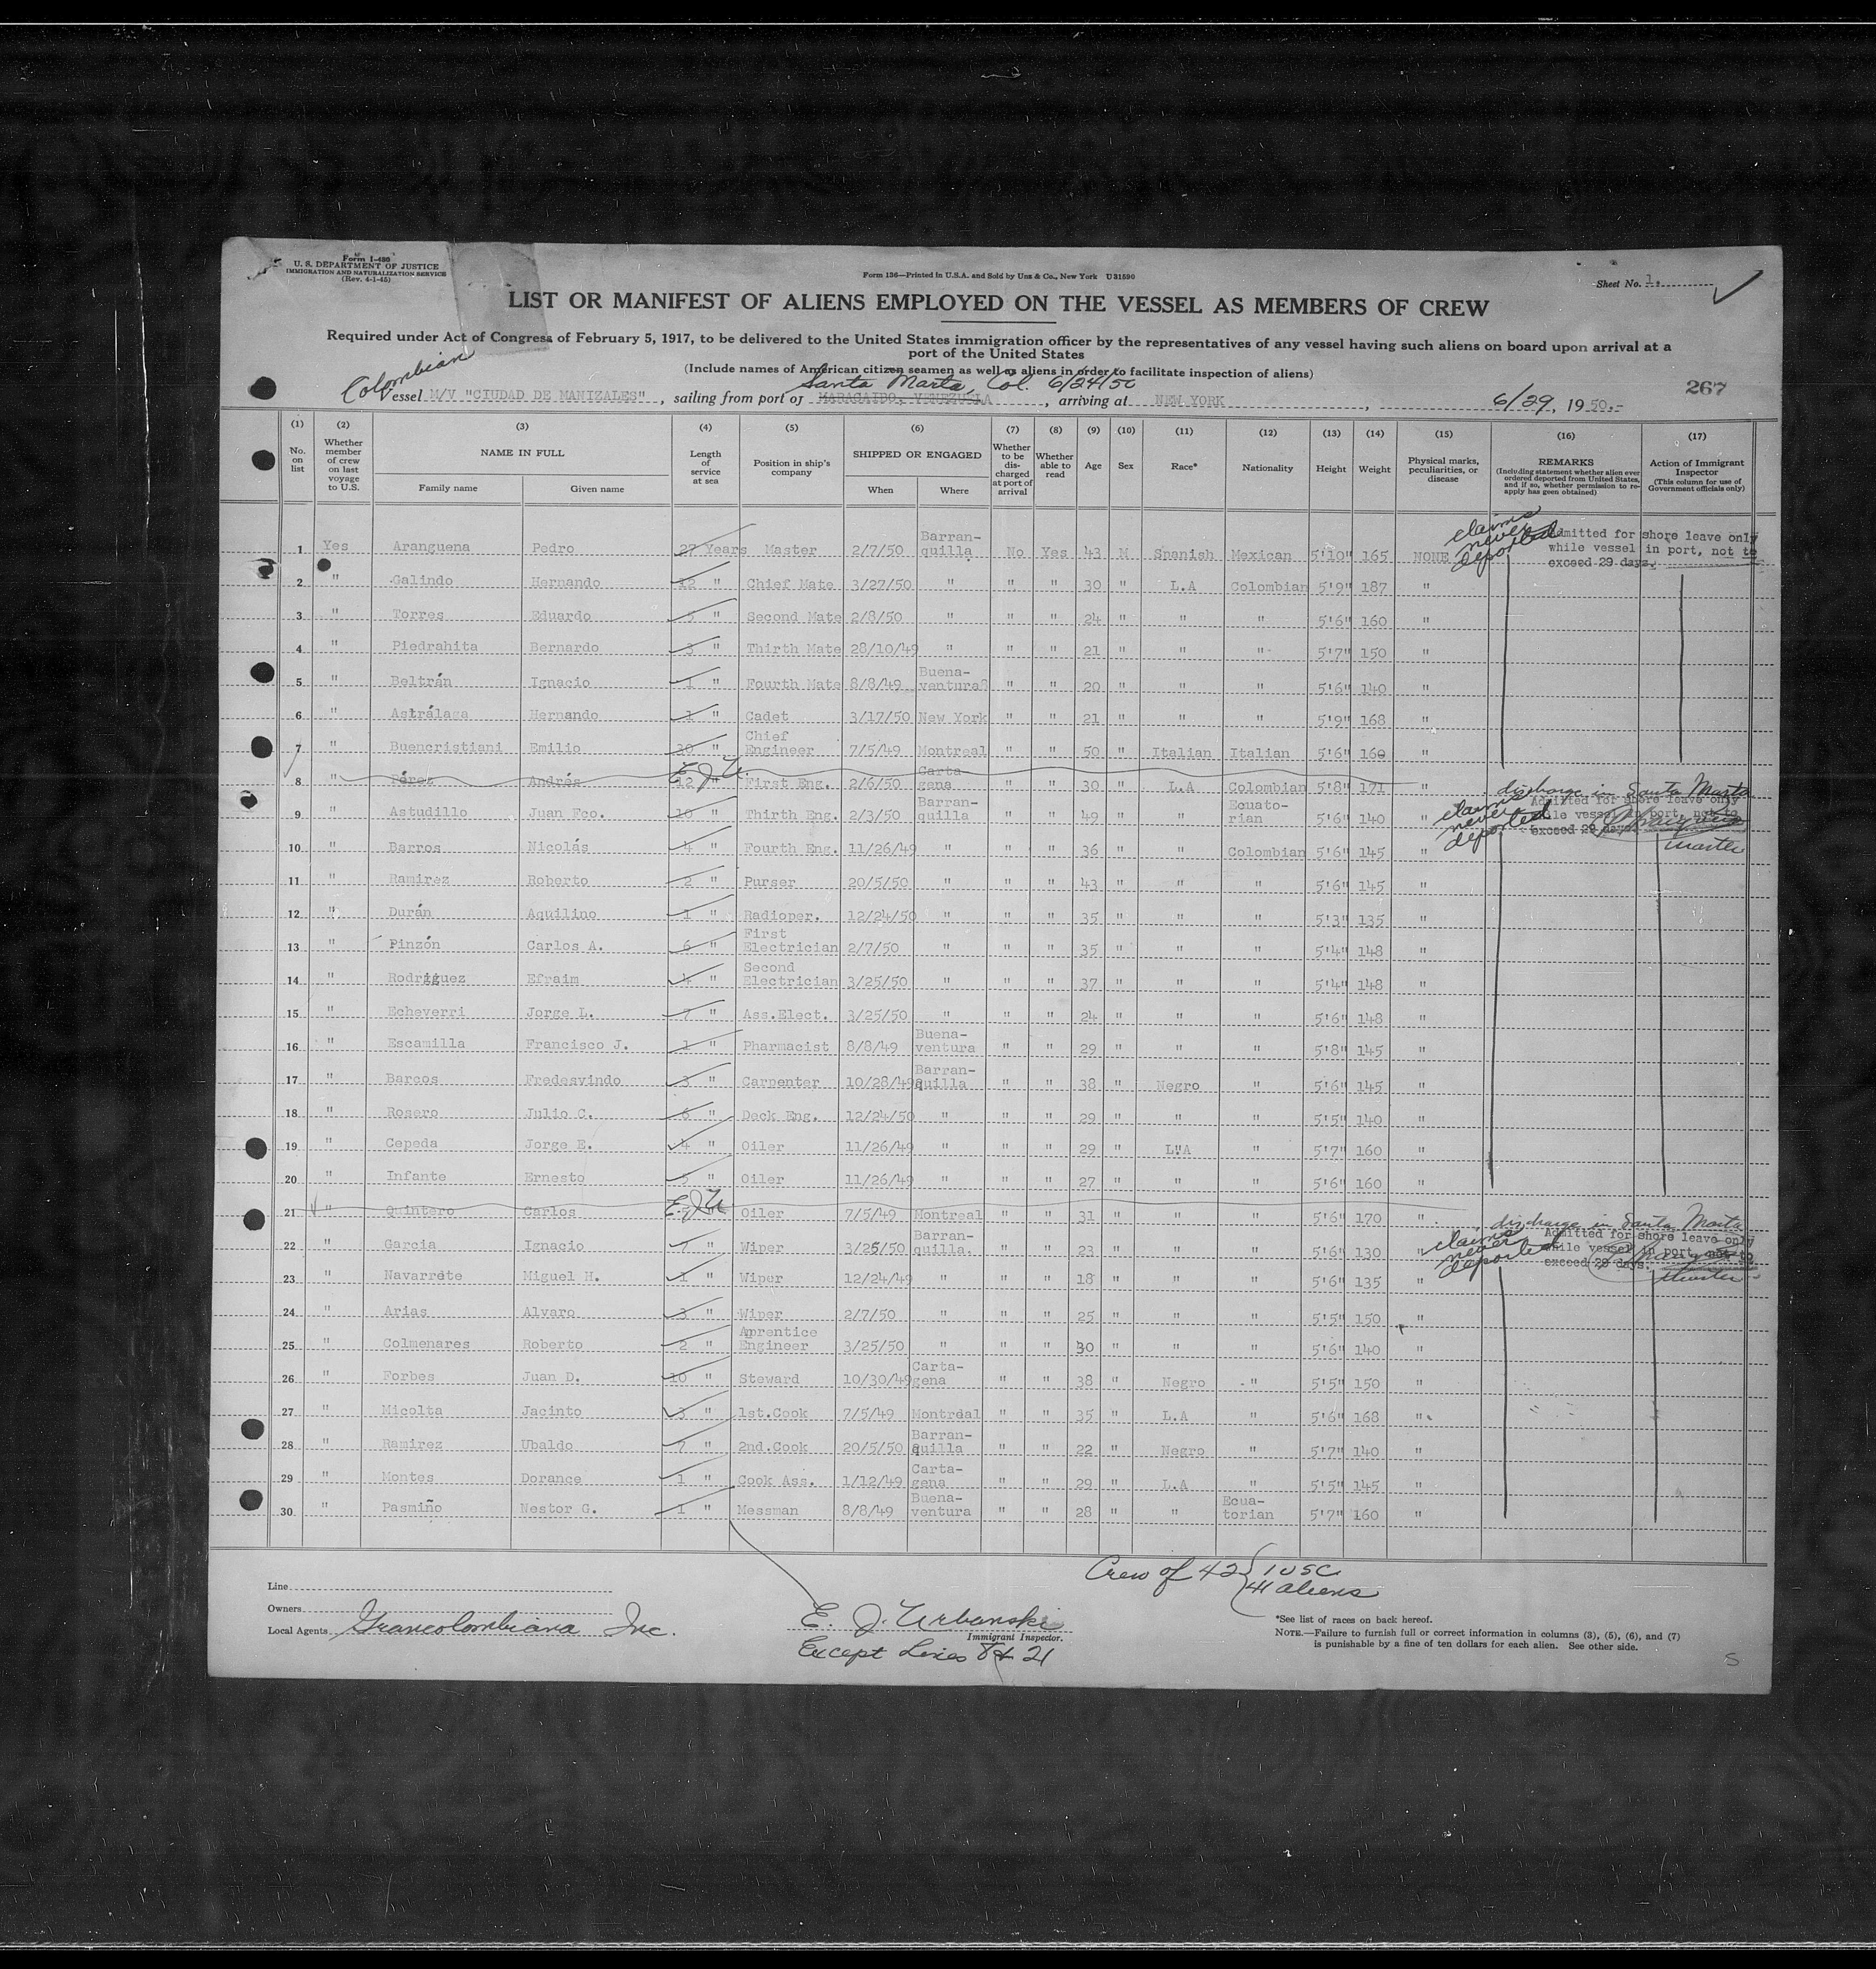 Form I-480
U. S. DEPARTMENT OF JUSTICE
IMMIGRATION AND NATURALIZATION SERVICE
(Rev. 4-1-45)
Form 136—Printed in U.S.A. and Sold by Unz & Co., New York U31590
Sheet No. 1.
LIST OR MANIFEST OF ALIENS EMPLOYED ON THE VESSEL AS MEMBERS OF CREW
Required under Act of Congress of February 5, 1917, to be delivered to the United States immigration officer by the representatives of any vessel having such aliens on board upon arrival at a
port of the United States
(Include names of American citizen seamen as well as aliens in order to facilitate inspection of aliens)
Colombian Santa Marta, Col. 6/24/50
267
Vessel M/V "CIUDAD DE MANIZALES" , sailing from port of MARACAIBO, VENEZUELA , arriving at NEW YORK , 6/29, 1950.-
(1) (2) (3) (4) (5) (6) (7) (8) (9) (10) (11) (12) (13) (14) (15) (16) (17)
No. on list Whether member of crew on last voyage to U.S. NAME IN FULL Family name Given name Length of service at sea Position in ship's company SHIPPED OR ENGAGED When Where Whether to be discharged at port of arrival Whether able to read Age Sex Race* Nationality Height Weight Physical marks, peculiarities, or disease REMARKS (Including statement whether alien ever ordered deported from United States, and if so, whether permission to reapply has been obtained) Action of Immigrant Inspector (This column for use of Government officials only)
1 Yes Aranguena Pedro 27 Years Master 2/7/50 Barran-quilla No Yes 43 M Spanish Mexican 5'10" 165 NONE claims never deported Admitted for shore leave only while vessel in port, not to exceed 29 days.
2 " Galindo Hernando 12 " Chief Mate 3/27/50 " " " 30 " L.A Colombian 5'9" 187 "
3 " Torres Eduardo 5 " Second Mate 2/8/50 " " " 24 " " " 5'6" 160 "
4 " Piedrahita Bernardo 3 " Thirth Mate 28/10/49 " " " 21 " " " 5'7" 150 "
5 " Beltrán Ignacio 1 " Fourth Mate 8/8/49 Buena-ventura " " 20 " " " 5'6" 140 "
6 " Astrálaga Hernando 1 " Cadet 3/17/50 New York " " 21 " " " 5'9" 168 "
7 " Buencristiani Emilio 30 " Chief Engineer 7/5/49 Montreal " " 50 " Italian Italian 5'6" 160 "
8 " Pérez Andrés E.J.U. 12 " First Eng. 2/6/50 Carta-gena " " 30 " L.A Colombian 5'8" 171 " discharge in Santa Marta
9 " Astudillo Juan Fco. 10 " Thirth Eng. 2/3/50 Barran-quilla " " 49 " " Ecuato-rian 5'6" 140 " claims never deported Admitted for shore leave only while vessel in port, not to exceed 29 days. Master
10 " Barros Nicolás 4 " Fourth Eng. 11/26/49 " " " 36 " " Colombian 5'6" 145 "
11 " Ramirez Roberto 2 " Purser 20/5/50 " " " 43 " " " 5'6" 145 "
12 " Durán Aquilino 1 " Radioper. 12/24/50 " " " 35 " " " 5'3" 135 "
13 " Pinzón Carlos A. 6 " First Electrician 2/7/50 " " " 35 " " " 5'4" 148 "
14 " Rodriguez Efraim 4 " Second Electrician 3/25/50 " " " 37 " " " 5'4" 148 "
15 " Echeverri Jorge L. 7 " Ass.Elect. 3/25/50 " " " 24 " " " 5'6" 148 "
16 " Escamilla Francisco J. 1 " Pharmacist 8/8/49 Buena-ventura " " 29 " " " 5'8" 145 "
17 " Barcos Fredesvindo 3 " Carpenter 10/28/49 Barran-quilla " " 38 " Negro " 5'6" 145 "
18 " Rosero Julio C. 6 " Deck Eng. 12/24/50 " " " 29 " " " 5'5" 140 "
19 " Cepeda Jorge E. 4 " Oiler 11/26/49 " " " 29 " L.A " 5'7" 160 "
20 " Infante Ernesto 5 " Oiler 11/26/49 " " " 27 " " " 5'6" 160 "
21 " Quintero Carlos E.J.U. Oiler 7/5/49 Montreal " " 31 " " " 5'6" 170 " discharge in Santa Marta
22 " Garcia Ignacio 7 " Wiper 3/25/50 Barran-quilla. " " 23 " " " 5'6" 130 " claims never deported Admitted for shore leave only while vessel in port, not to exceed 29 days. Master
23 " Navarrete Miguel H. 1 " Wiper 12/24/49 " " " 18 " " " 5'6" 135 "
24 " Arias Alvaro 3 " Wiper 2/7/50 " " " 25 " " " 5'5" 150 "
25 " Colmenares Roberto 2 " Aprentice Engineer 3/25/50 " " " 30 " " " 5'6" 140 "
26 " Forbes Juan D. 10 " Steward 10/30/49 Carta-gena " " 38 " Negro " 5'5" 150 "
27 " Micolta Jacinto 3 " 1st.Cook 7/5/49 Montreal " " 35 " L.A " 5'6" 168 "
28 " Ramirez Ubaldo 7 " 2nd.Cook 20/5/50 Barran-quilla " " 22 " Negro " 5'7" 140 "
29 " Montes Dorance 1 " Cook Ass. 1/12/49 Carta-gena " " 29 " L.A " 5'5" 145 "
30 " Pasmiño Nestor G. 1 " Messman 8/8/49 Buena-ventura " " 28 " " Ecua-torian 5'7" 160 "
Crew of 42 { 1 USC
41 aliens
Line
Owners
Local Agents Grancolombiana Inc.
E. J. Urbanski
Immigrant Inspector.
Except Lines 8 & 21
*See list of races on back hereof.
NOTE.—Failure to furnish full or correct information in columns (3), (5), (6), and (7)
is punishable by a fine of ten dollars for each alien. See other side.
S